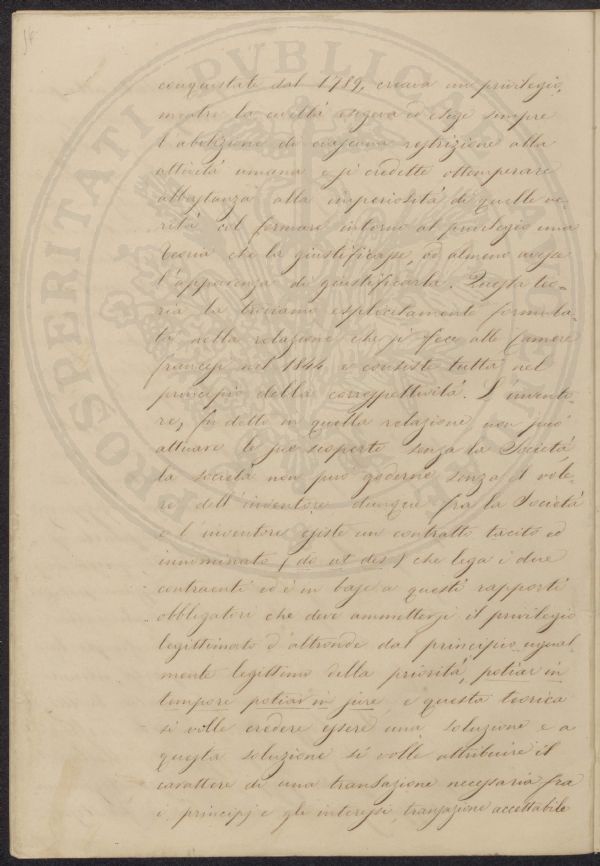 conquistate dal 1789, creava un privilegio,
mentre la civiltà esigeva ed esige sempre
l'abolizione di ciascuna restrizione alla
attività umana e si credette ottemperare
abbastanza alla imperiosità di quelle ve-
rità col formare intorno al privilegio una
teoria che la giustificasse, od almeno avesse
l'apparenza di giustificarla. Questa teo-
ria la troviamo esplicitamente formula-
ta nella relazione che si fece alle Camere
francesi nel 1844 e consiste tutta nel
principio della corrispettività. L'invento-
re, fu detto in quella relazione non può
attuare le sue scoperte senza la Società,
la società non può goderne senza il vole-
re dell'inventore dunque fra la Società
e l'inventore esiste un contratto tacito ed
innominato (do ut des) che lega i due
contraenti ed è in base a questi rapporti
obbligatori che deve ammettersi il privilegio
legittimato d'altronde dal principio egual-
mente legittimo della priorità, potior in
tempore potior in jure, e questa teorica
si volle credere essere una soluzione e a
questa soluzione si volle attribuire il
carattere di una transazione necessaria fra
i principj e gli interessi, transazione accettabile
PROSPERITATI PVBLICAE